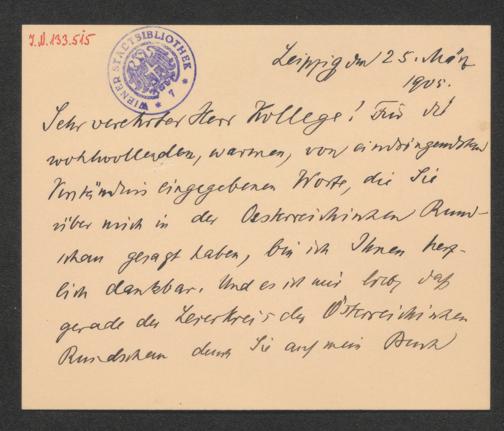 J.N. 133.515
WIENER STADTBIBLIOTHEK
* 7 *
Leipzig den 25. März
1905.
Sehr verehrter Herr Kollege! Für die
wohlwollenden, warmen, von eindringendstem
Verständnis eingegebenen Worte, die Sie
über mich in der Oesterreichischen Rund-
schau gesagt haben, bin ich Ihnen herz-
lich dankbar. Und es ist mir lieb, daß
gerade der Leserkreis der Österreichischen
Rundschau durch Sie auf mein Buch